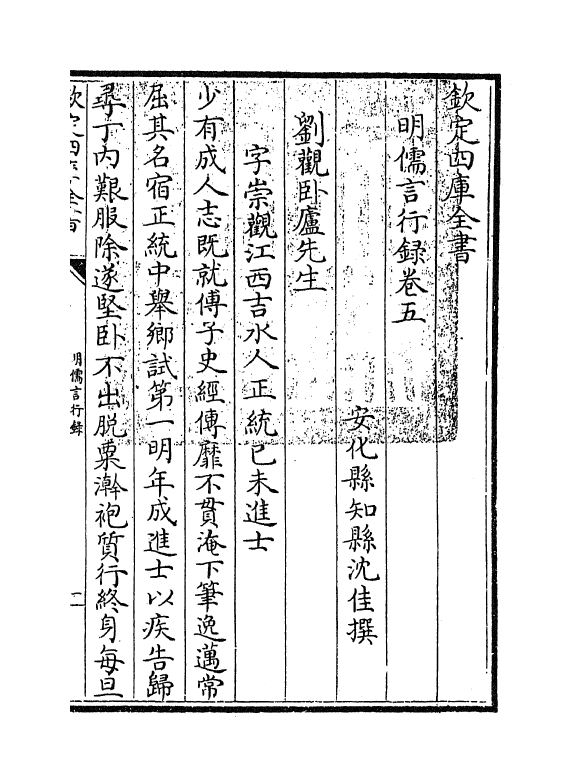 欽定四庫全書
明儒言行録卷五
安化縣知縣沈佳撰
劉觀卧廬先生
字崇觀江西吉水人正統已未進士
少有成人志既就傅子史經傳靡不貫淹下筆逸邁常
屈其名宿正統中舉鄉試第一明年成進士以疾告歸
尋丁内艱服除遂堅卧不出脱粟澣袍質行終身每旦
欽定四庫全書
明儒言行録